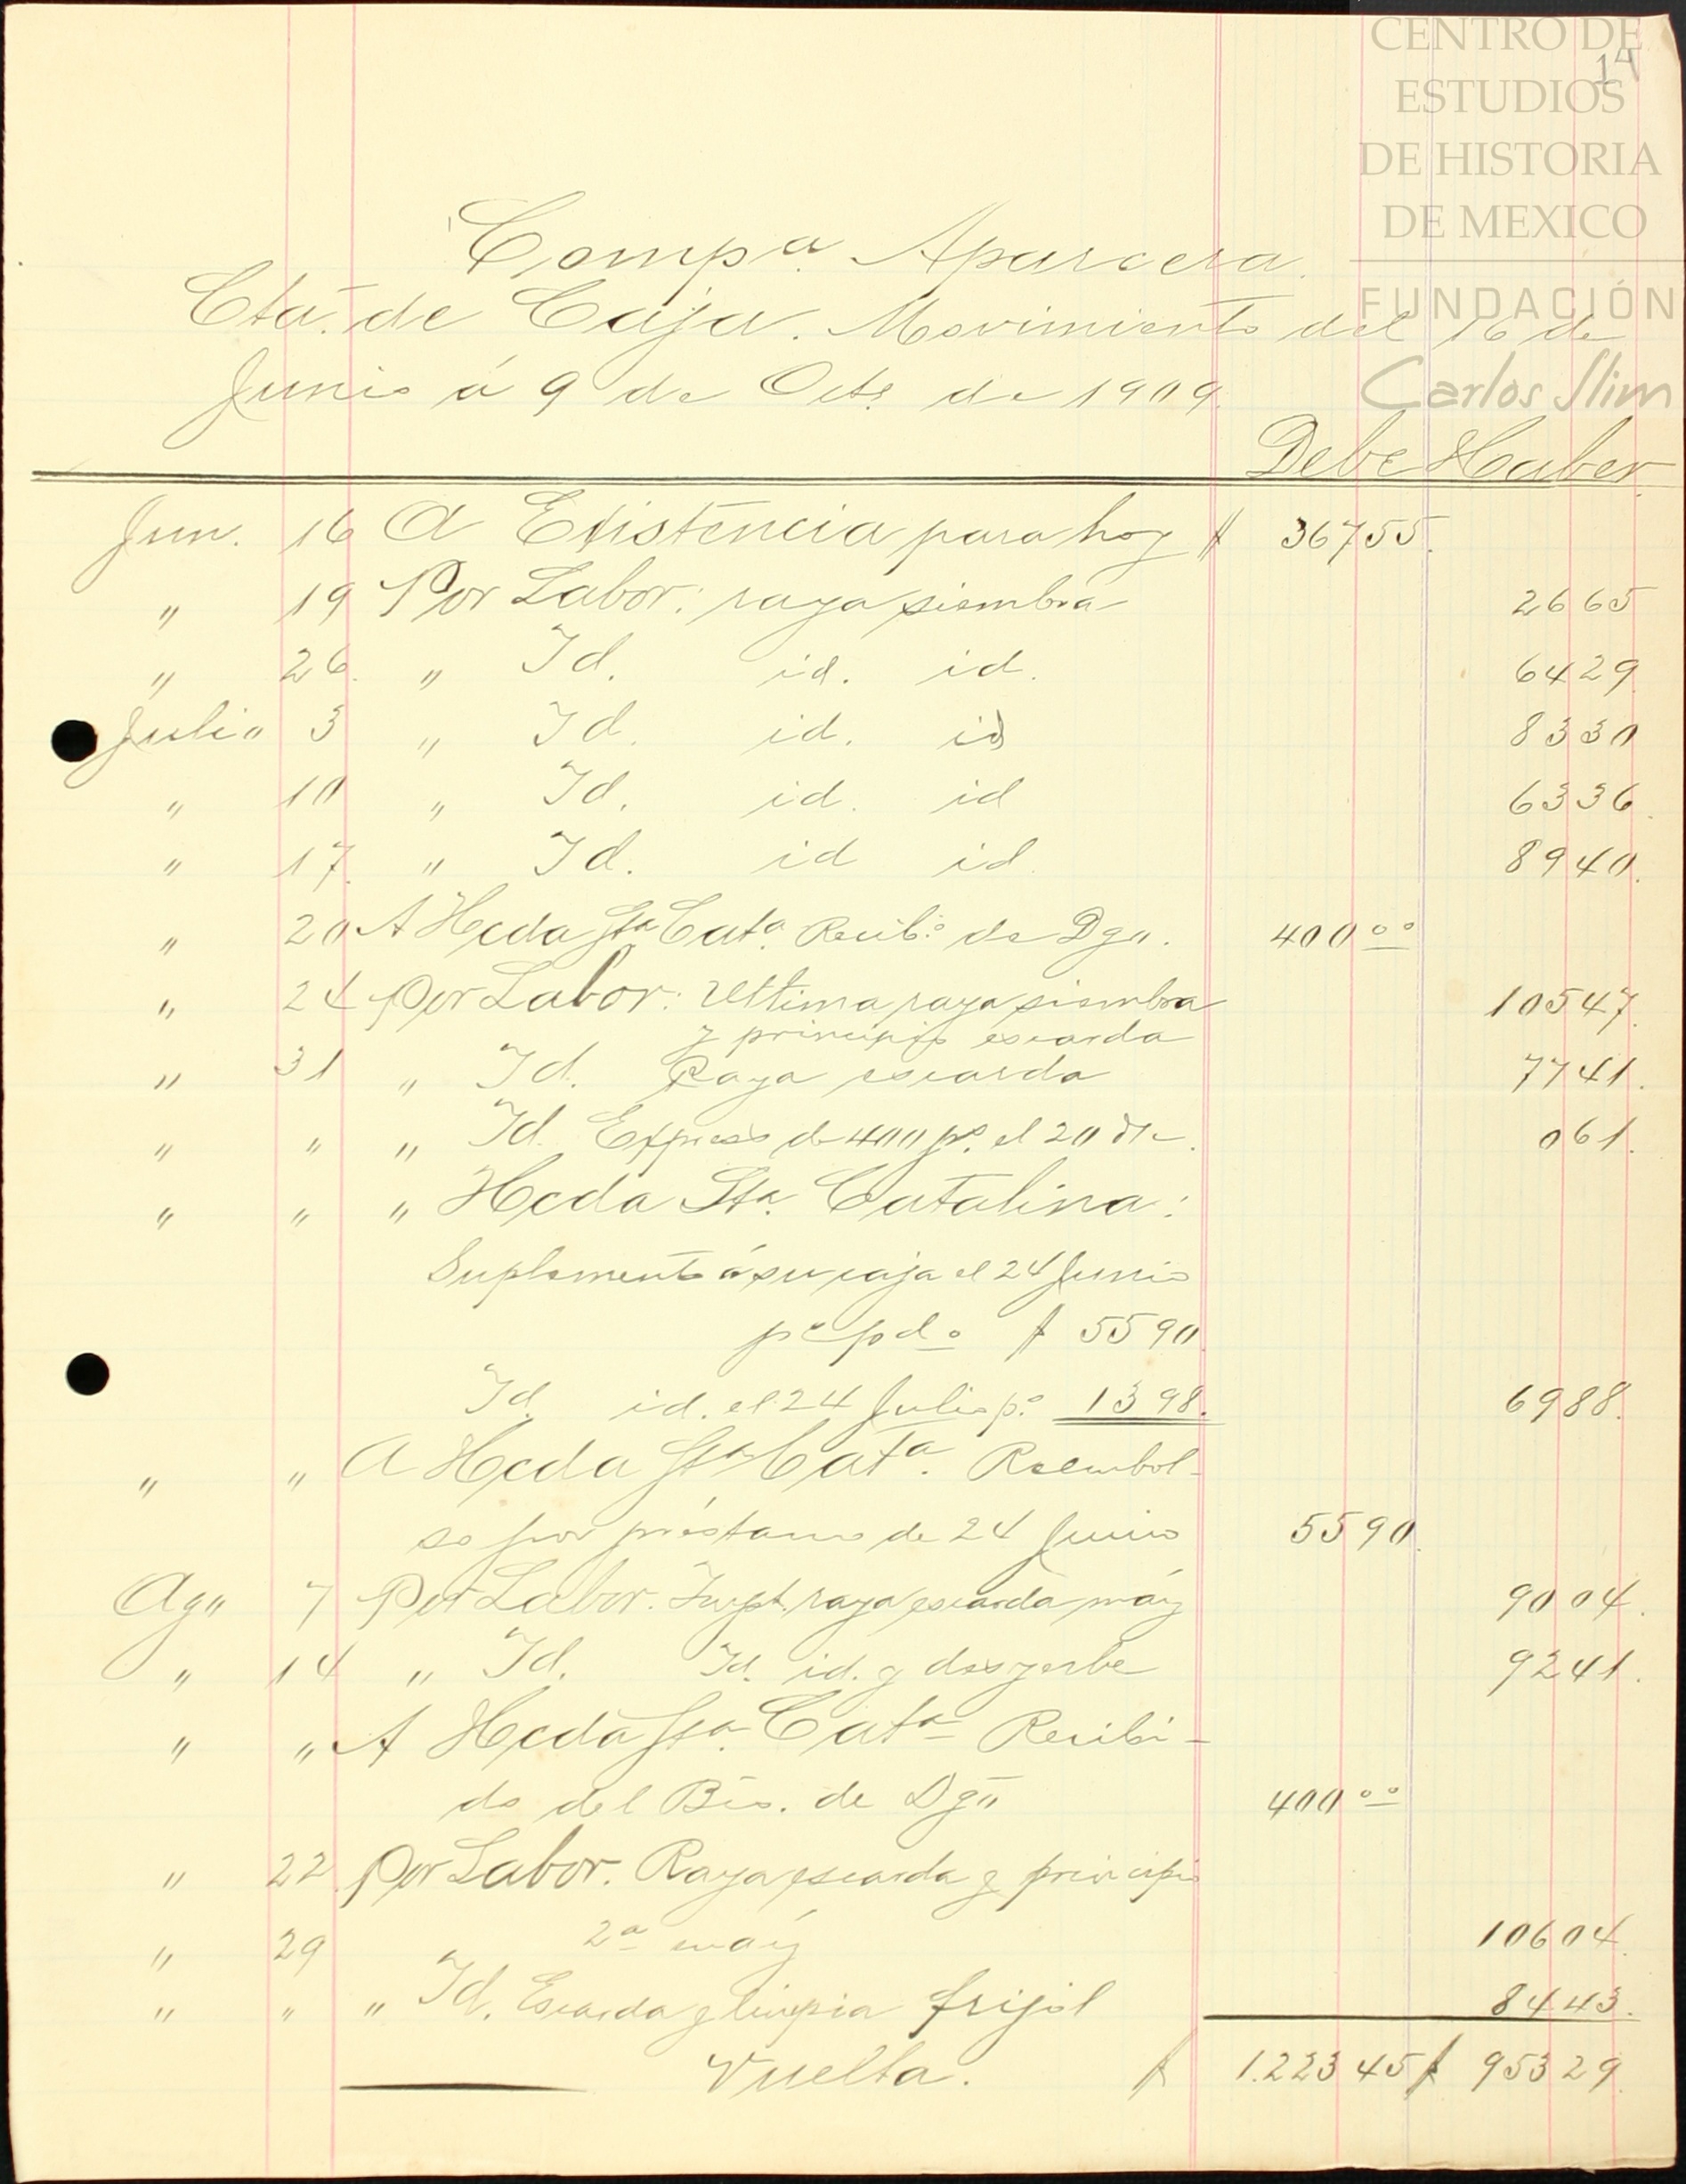 CENTRO DE
ESTUDIOS
DE HISTORIA
DE MEXICO
FUNDACIÓN
Carlos Slim
14
Compª. Aparcera.
Cta. de Caja. Movimiento del 16 de
Junio á 9 de Octe. de 1909.
Debe Haber
Jun. 16 A Existencia para hoy $ 367 55.
" 19 Por Labor: raya siembra 26 65
" 26. " Id. id. id. 64 29.
Julio 3 " Id. id. id 83 30
" 10 " Id. id. id 63 36.
" 17. " Id. id id 89 40.
" 20 A Hcda Sta Cata. Recib.º de Dgo. 400 00
" 24 Por Labor: Ultima raya siembra 105 47.
y principio escarda
" 31 " Id. Raya escarda 77 41.
" " " Id. Express de 400 ps. el 20 de 0 61.
" " " Hcda Sta. Catalina:
Suplemento á su caja el 24 Junio
ppdo $ 55 90.
Id. id. el 24 Julio p.º 13 98. 69 88.
" " A Hcda Sta Cata. Reembol-
so por préstamo de 24 Junio 55 90.
Ago 7 Por Labor. Impt. raya escarda maíz 90 04.
" 14 " Id. Id. id. y desyerbe 92 41.
" " A Hcda Sta. Cata Recibi-
do del Bco. de Dgo 400 00
" 22 Por Labor. Raya escarda y principio
" 29 2ª maíz 106 04.
" " " Id. Escarda y limpia frijol 84 43.
Vuelta. $ 1.223 45 $ 953 29.